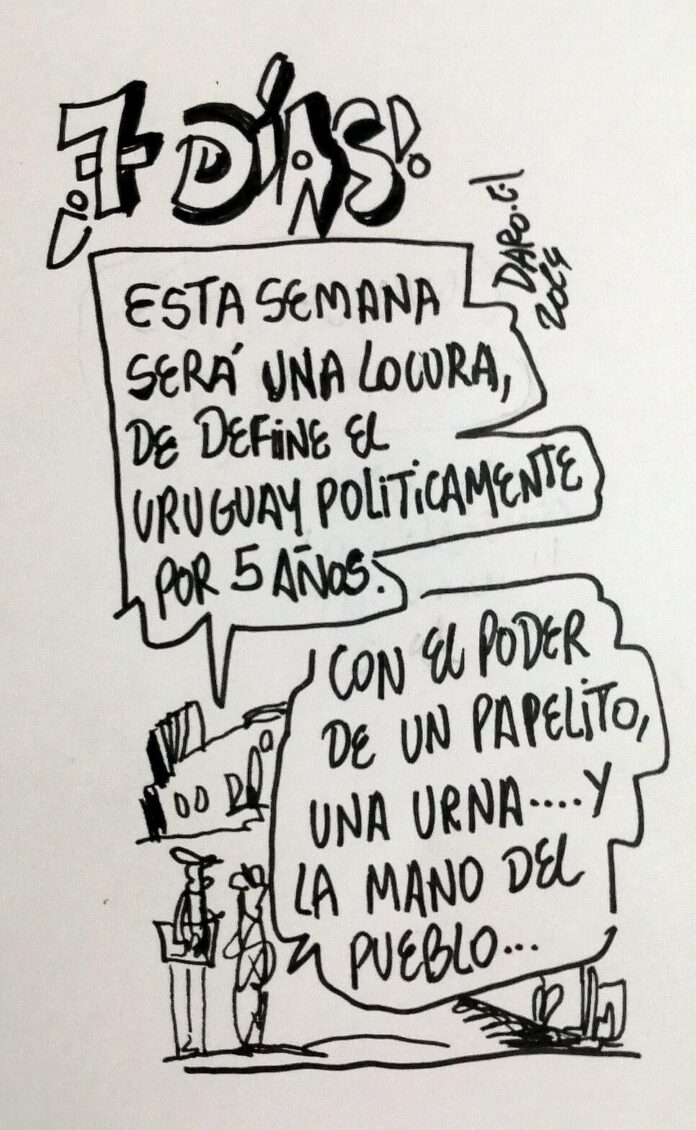 ¡7 DÍAS!
DARO.G
2024
ESTA SEMANA
SERÁ UNA LOCURA,
DE DEFINE EL
URUGUAY POLITICAMENTE
POR 5 AÑOS.
CON EL PODER
DE UN PAPELITO,
UNA URNA....Y
LA MANO DEL
PUEBLO...